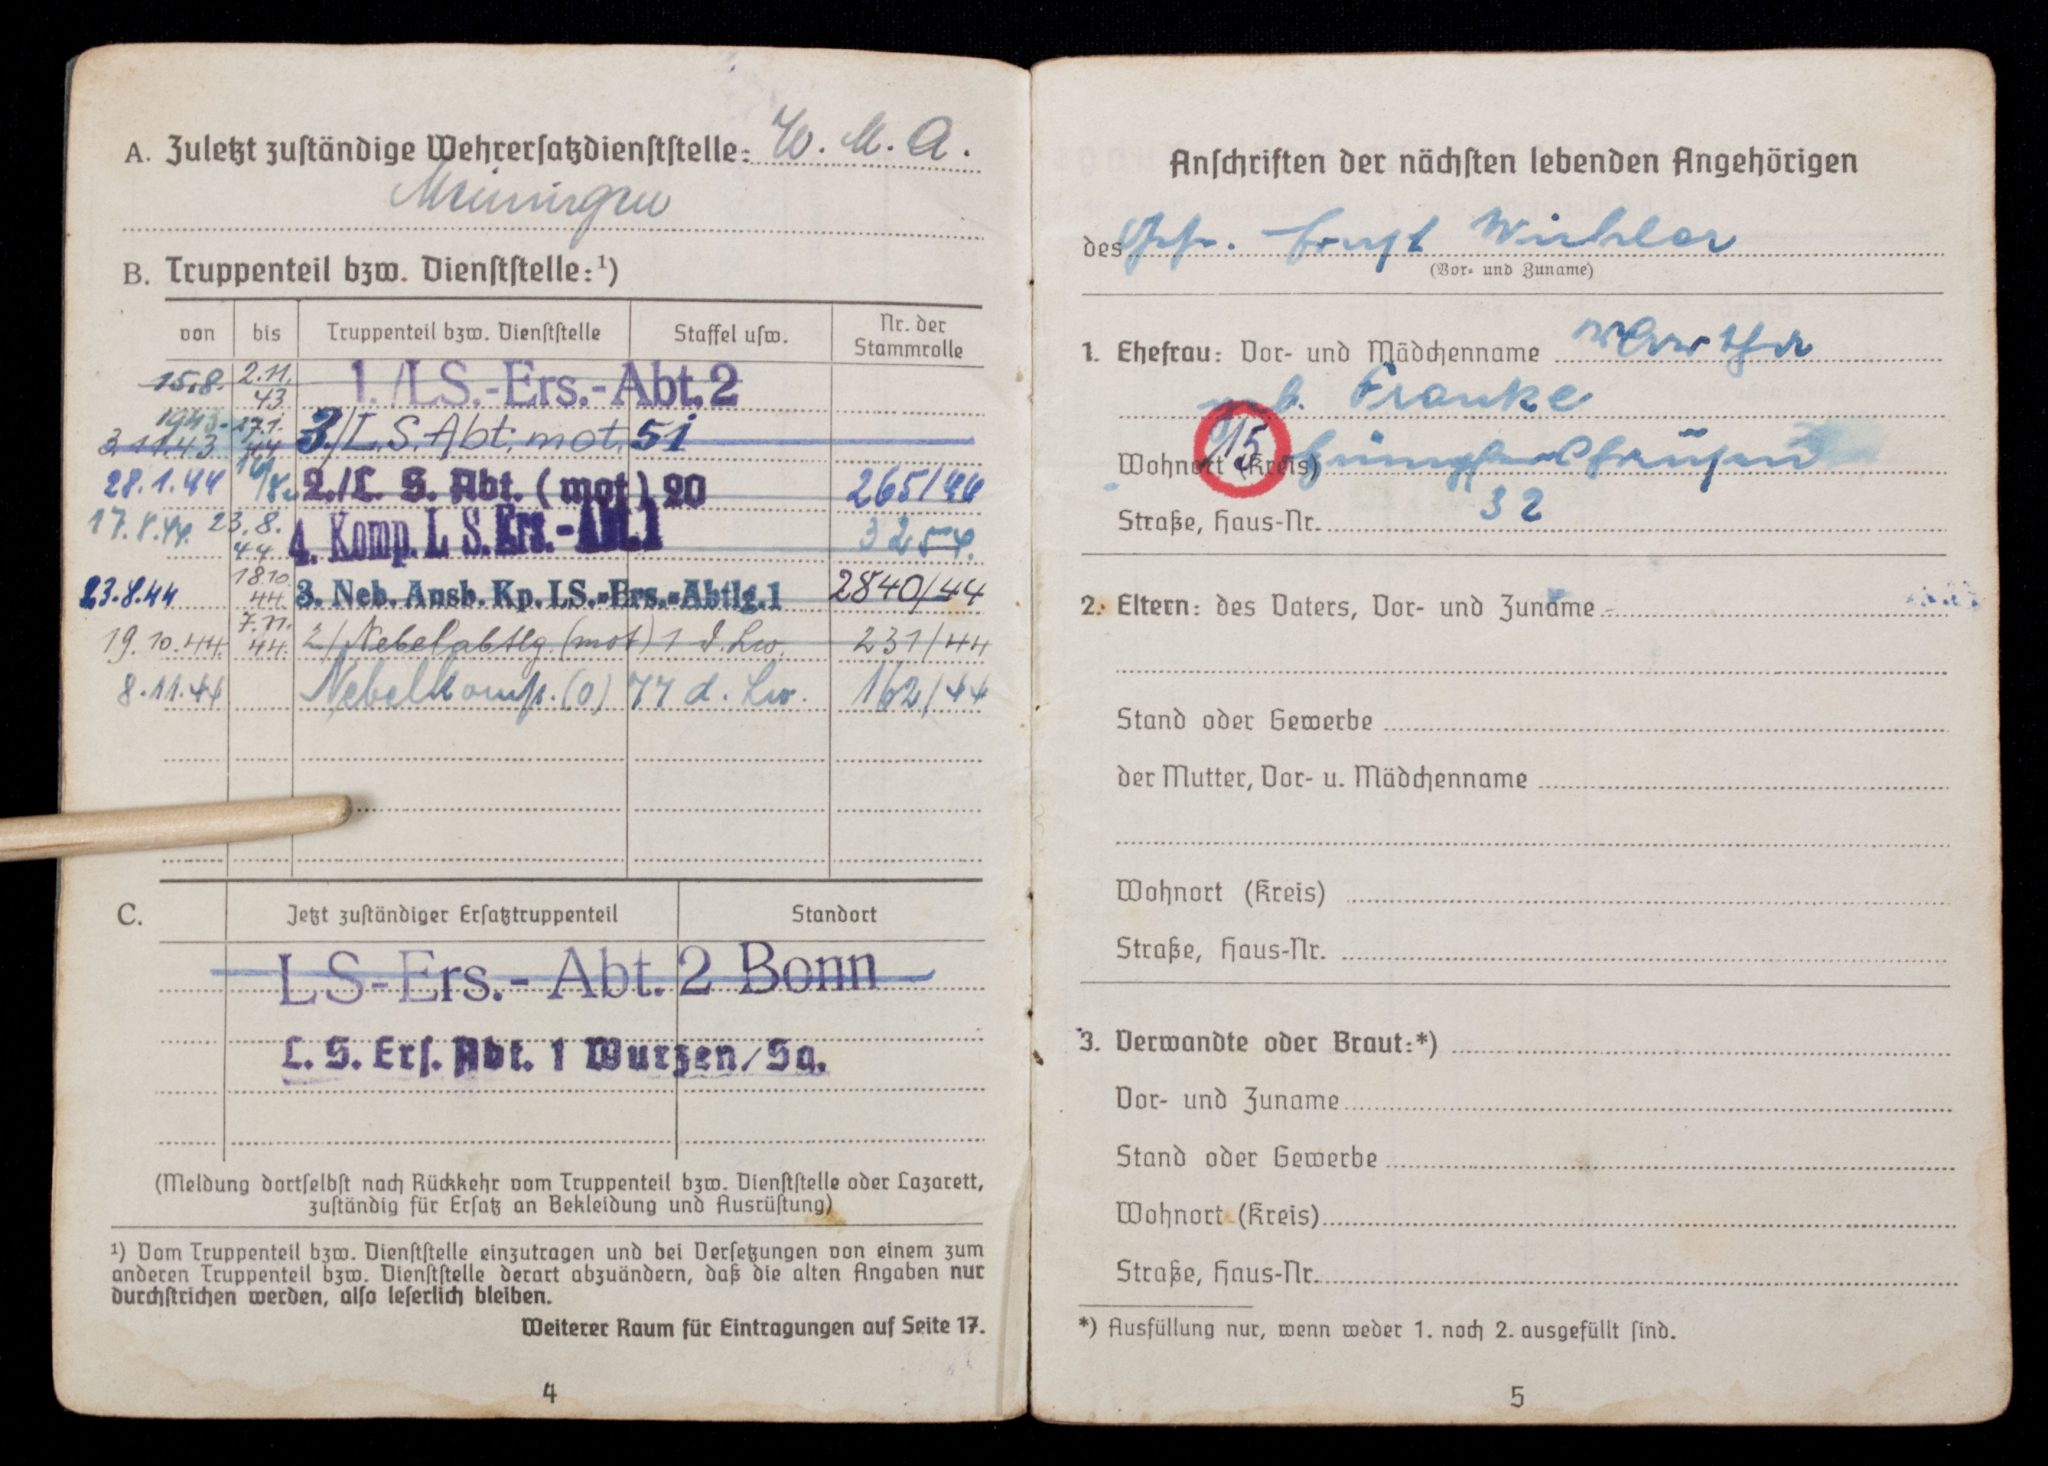 A. Zuletzt zuständige Wehrersatzdienststelle: W. M. A.
Meiningen
B. Truppenteil bzw. Dienststelle:¹)
von bis Truppenteil bzw. Dienststelle Staffel usw. Nr. der Stammrolle
15.8. 1943 2.11. 43 1./LS.-Ers.-Abt. 2
3.11.43 27.1. 44 3./L.S. Abt. mot. 51
28.1.44 2./L. S. Abt. (mot) 20 265/44
17.8.44 23.8. 44 4. Komp. L S. Ers.-Abt. 1 3254.
23.8.44 18.10. 44 3. Neb. Ausb. Kp. LS.-Ers.-Abtlg. 1 2840/44
19.10.44 7.11. 44 2/Nebelabtlg. (mot) 1 d. Lw. 231/44
8.11.44 Nebelkomp. (o) 77 d. Lw. 162/44
C. Jetzt zuständiger Ersatztruppenteil Standort
LS-Ers.-Abt. 2 Bonn
L. S. Ers. Abt. 1 Wurzen/Sa.
(Meldung dortselbst nach Rückkehr vom Truppenteil bzw. Dienststelle oder Lazarett,
zuständig für Ersatz an Bekleidung und Ausrüstung)
¹) Vom Truppenteil bzw. Dienststelle einzutragen und bei Versetzungen von einem zum
anderen Truppenteil bzw. Dienststelle derart abzuändern, daß die alten Angaben nur
durchstrichen werden, also leserlich bleiben.
Weiterer Raum für Eintragungen auf Seite 17.
4
Anschriften der nächsten lebenden Angehörigen
des Gefr. Ernst
(Vor- und Zuname)
1. Ehefrau: Vor- und Mädchenname Martha
geb. Franke
15
Wohnort (Kreis)
Straße, Haus-Nr. 32
2. Eltern: des Vaters, Vor- und Zuname
Stand oder Gewerbe
der Mutter, Vor- u. Mädchenname
Wohnort (Kreis)
Straße, Haus-Nr.
3. Verwandte oder Braut:*)
Vor- und Zuname
Stand oder Gewerbe
Wohnort (Kreis)
Straße, Haus-Nr.
*) Ausfüllung nur, wenn weder 1. noch 2. ausgefüllt sind.
5